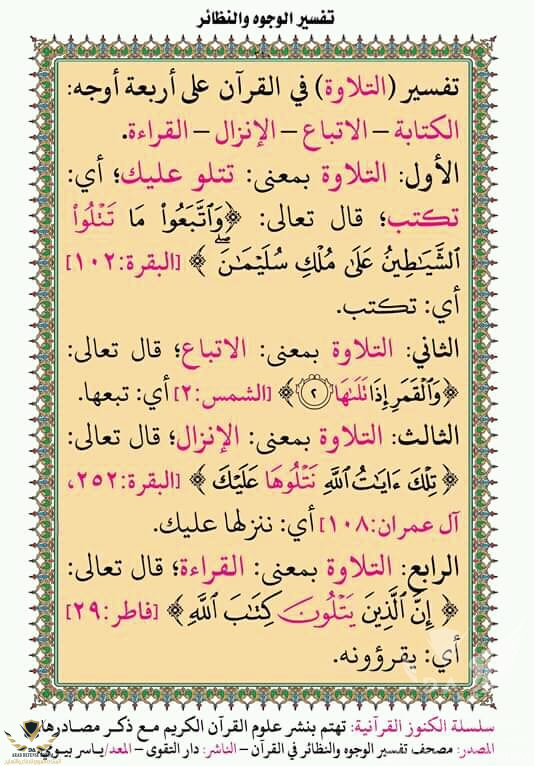 تفسير الوجوه والنظائر
تفسير (التلاوة) في القرآن على أربعة أوجه:
الكتابة – الاتباع – الإنزال – القراءة.
الأول: التلاوة بمعنى: تتلو عليك؛ أي:
تكتب؛ قال تعالى: ﴿وَٱتَّبَعُواْ مَا تَتْلُواْ
ٱلشَّيَاطِينُ عَلَىٰ مُلْكِ سُلَيْمَانَۖ﴾ [البقرة:١٠٢]
أي: تكتب.
الثاني: التلاوة بمعنى: الاتباع؛ قال تعالى:
﴿وَٱلْقَمَرِ إِذَا تَلَىٰهَا ٢﴾ [الشمس:٢] أي: تبعها.
الثالث: التلاوة بمعنى: الإنزال؛ قال تعالى:
﴿تِلْكَ ءَايَاتُ ٱللَّهِ نَتْلُوهَا عَلَيْكَ﴾ [البقرة:٢٥٢،
آل عمران:١٠٨] أي: ننزلها عليك.
الرابع: التلاوة بمعنى: القراءة؛ قال تعالى:
﴿إِنَّ ٱلَّذِينَ يَتْلُونَ كِتَابَ ٱللَّهِ﴾ [فاطر:٢٩]
أي: يقرؤونه.
سلسلة الكنوز القرآنية: تهتم بنشر علوم القرآن الكريم مع ذكر مصادرها
المصدر: مصحف تفسير الوجوه والنظائر في القرآن – الناشر: دار التقوى – المعد/ياسر بيومي